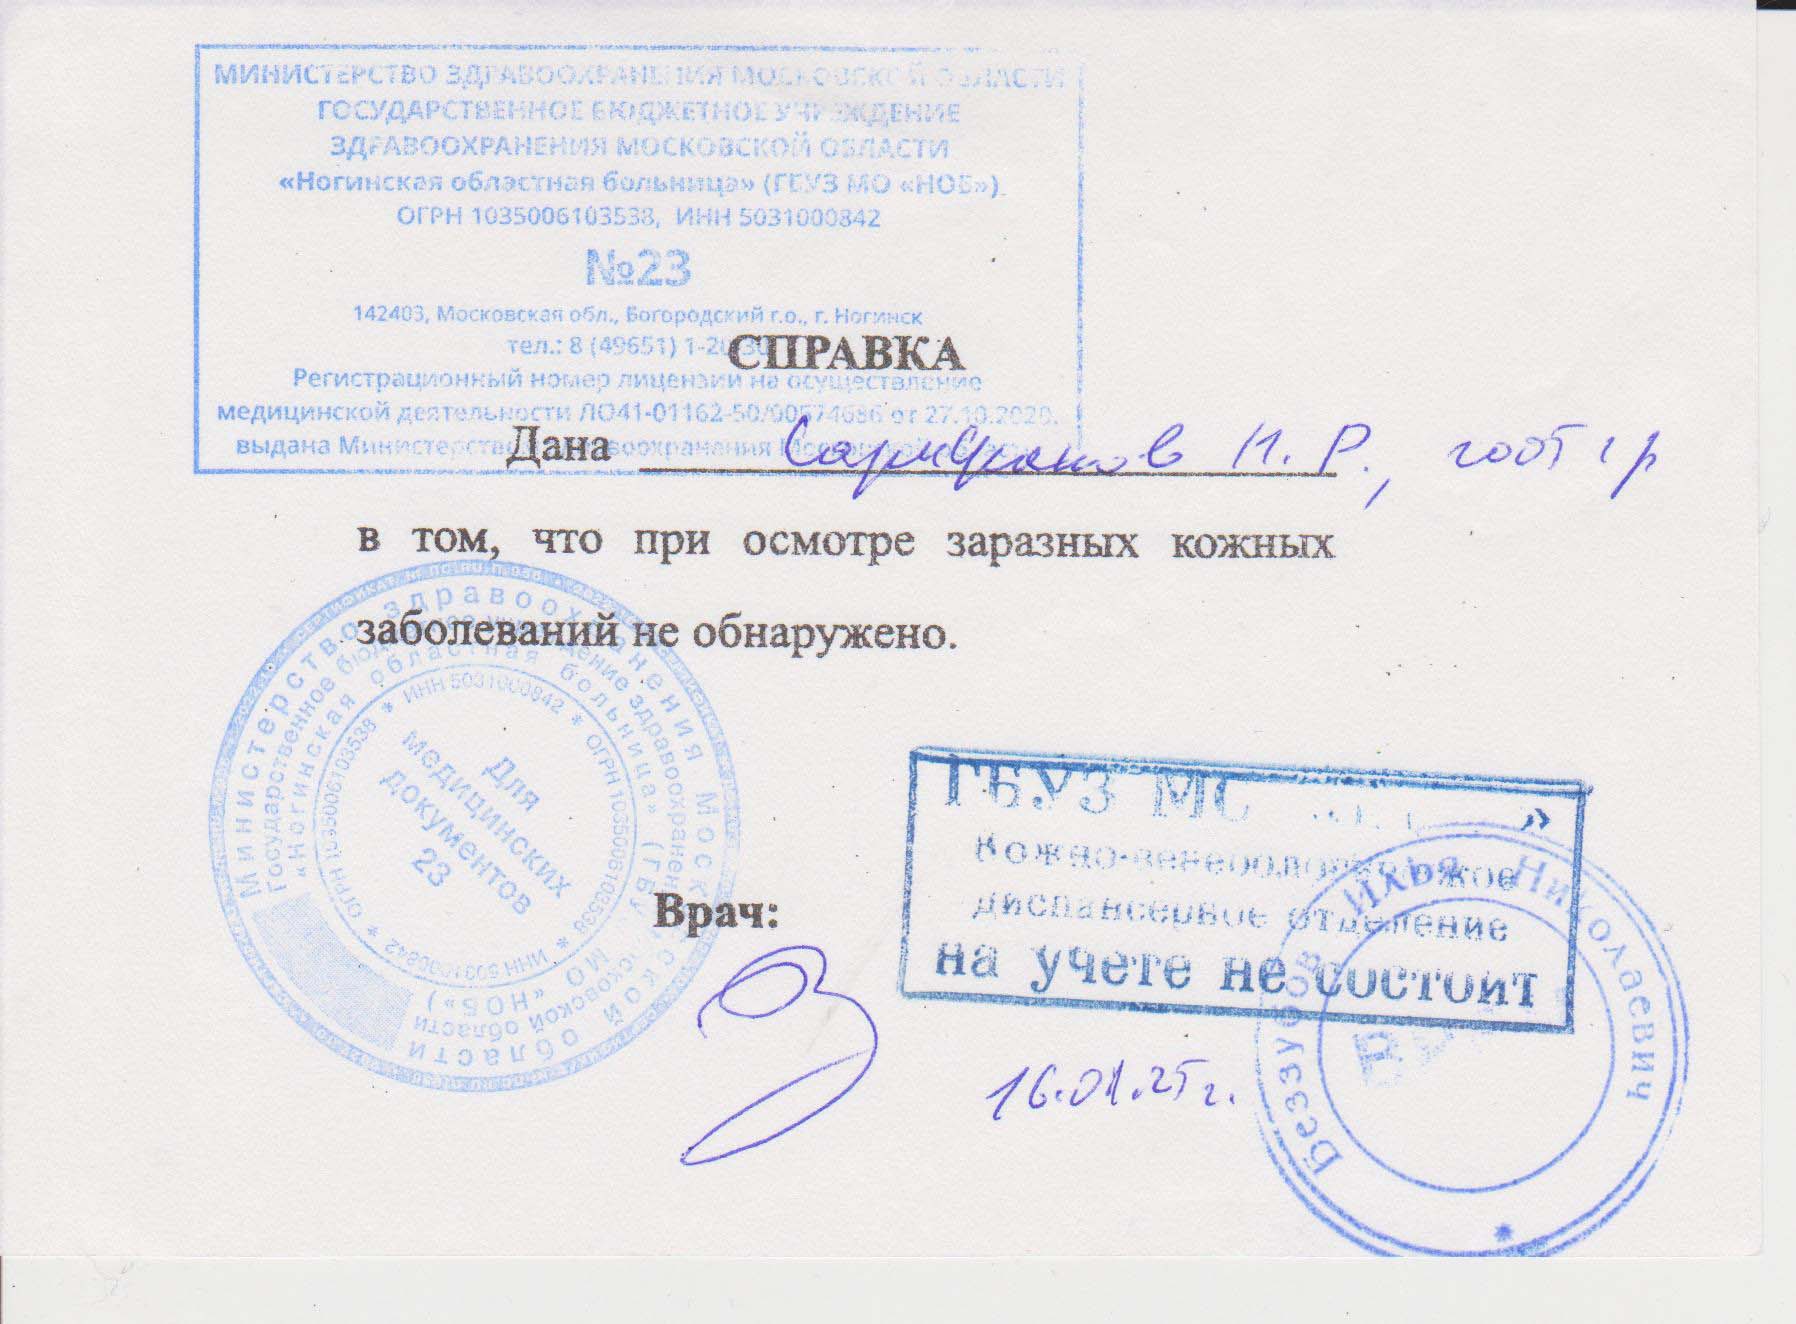 МИНИСТЕРСТВО ЗДРАВООХРАНЕНИЯ МОСКОВСКОЙ ОБЛАСТИ
ГОСУДАРСТВЕННОЕ БЮДЖЕТНОЕ УЧРЕЖДЕНИЕ
ЗДРАВООХРАНЕНИЯ МОСКОВСКОЙ ОБЛАСТИ
«Ногинская областная больница» (ГБУЗ МО «НОБ»)
ОГРН 1035006103538, ИНН 5031000842
№23
142403, Московская обл., Богородский г.о., г. Ногинск
тел.: 8 (49651)
СПРАВКА
Регистрационный номер лицензии на осуществление
медицинской деятельности ЛО41-01162-50/00574686 от 27.10.2020.
выдана
Дана Р.,
в том, что при осмотре заразных кожных
заболеваний не обнаружено.
Министерство здравоохранения Московской области
Государственное бюджетное учреждение здравоохранения Московской области
«Ногинская областная больница» (ГБУЗ МО «НОБ»)
ОГРН 1035006103538 * ИНН 5031000842 * ОГРН 1035006103538 * ИНН 5031000842 *
Для
медицинских
документов
23
Врач:
ГБУЗ »
Кожно-венерологическое
диспансерное отделение
на учете не состоит
16.01.25 г.
Беззубов Илья Николаевич